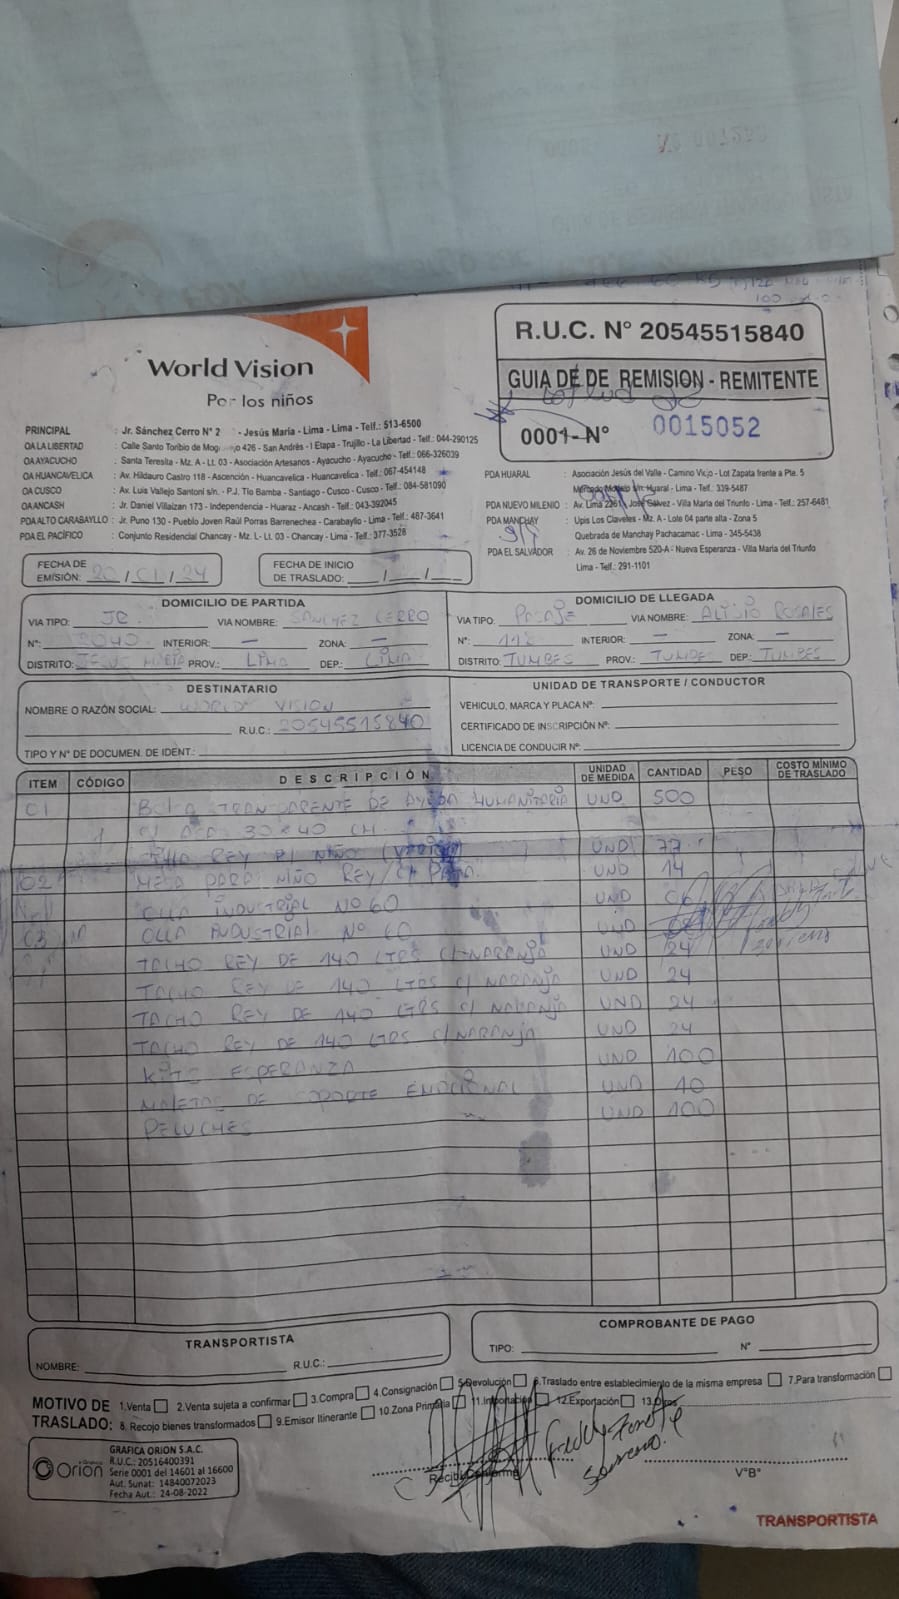 World Vision
Por los niños
R.U.C. N° 20545515840
GUIA DE DE REMISION - REMITENTE
0001- N° 0015052
PRINCIPAL : Jr. Sánchez Cerro N° 2 - Jesús María - Lima - Lima - Telf.: 513-6500
OA LA LIBERTAD : Calle Santo Toribio de Mog 426 - San Andrés - I Etapa - Trujillo - La Libertad - Telf.: 044-290125
OA AYACUCHO : Santa Teresita - Mz. A - Lt. 03 - Asociación Artesanos - Ayacucho - Ayacucho - Telf.: 066-326039
OA HUANCAVELICA : Av. Hildauro Castro 118 - Ascención - Huancavelica - Huancavelica - Telf.: 067-454148
OA CUSCO : Av. Luis Vallejo Santoni s/n. - P.J. Tío Bamba - Santiago - Cusco - Cusco - Telf.: 084-581090
OA ANCASH : Jr. Daniel Villaizan 173 - Independencia - Huaraz - Ancash - Telf.: 043-392045
PDA ALTO CARABAYLLO : Jr. Puno 130 - Pueblo Joven Raúl Porras Barrenechea - Carabayllo - Lima - Telf.: 487-3641
PDA EL PACÍFICO : Conjunto Residencial Chancay - Mz. L - Lt. 03 - Chancay - Lima - Telf.: 377-3528
PDA HUARAL : Asociación Jesús del Valle - Camino Viejo - Lot Zapata frente a Pte. 5
Mercado Modelo s/n. Huaral - Lima - Telf.: 339-5487
PDA NUEVO MILENIO : Av. Lima 2261 José Gálvez - Villa María del Triunfo - Lima - Telf.: 257-6481
PDA MANCHAY : Upis Los Claveles - Mz. A - Lote 04 parte alta - Zona 5
Quebrada de Manchay Pachacamac - Lima - 345-5438
PDA EL SALVADOR : Av. 26 de Noviembre 520-A - Nueva Esperanza - Villa María del Triunfo
Lima - Telf.: 291-1101
FECHA DE EMISIÓN: 20/01/24
FECHA DE INICIO DE TRASLADO: / /
DOMICILIO DE PARTIDA
VIA TIPO: JR VIA NOMBRE: SANCHEZ CERRO
N°: 2040 INTERIOR: — ZONA: —
DISTRITO: JESUS MARIA PROV.: LIMA DEP.: LIMA
DOMICILIO DE LLEGADA
VIA TIPO: PASAJE VIA NOMBRE: ALIPIO ROSALES
N°: 112 INTERIOR: — ZONA: —
DISTRITO: TUMBES PROV.: TUMBES DEP.: TUMBES
DESTINATARIO
NOMBRE O RAZÓN SOCIAL: WORLD VISION
R.U.C.: 20545515840
TIPO Y N° DE DOCUMEN. DE IDENT.:
UNIDAD DE TRANSPORTE / CONDUCTOR
VEHICULO, MARCA Y PLACA N°:
CERTIFICADO DE INSCRIPCIÓN N°:
LICENCIA DE CONDUCIR N°:
ITEM CÓDIGO DESCRIPCIÓN UNIDAD DE MEDIDA CANTIDAD PESO COSTO MÍNIMO DE TRASLADO
01 BOLSA TRANSPARENTE DE AYUDA HUMANITARIA UND 500
30 x 40 CM
REY P/ NIÑO UND 77
102 MESA PARA NIÑO REY UND 14
OLLA INDUSTRIAL N° 60 UND
OLLA INDUSTRIAL N° 60 UND
TACHO REY DE 140 LTRS C/ NARANJA UND 24
TACHO REY DE 140 LTRS C/ NARANJA UND 24
TACHO REY DE 140 LTRS C/ NARANJA UND 24
TACHO REY DE 140 LTRS C/ NARANJA UND 24
KITS ESPERANZA UND 100
MALETAS DE SOPORTE EMOCIONAL UND 10
PELUCHES UND 100
TRANSPORTISTA
NOMBRE: R.U.C.:
COMPROBANTE DE PAGO
TIPO: N°
MOTIVO DE TRASLADO: 1.Venta 2.Venta sujeta a confirmar 3.Compra 4.Consignación 5.Devolución 6.Traslado entre establecimiento de la misma empresa 7.Para transformación
8. Recojo bienes transformados 9.Emisor Itinerante 10.Zona Primaria 11.Importación 12.Exportación 13.Otros
Orion
GRAFICA ORION S.A.C.
R.U.C.: 20516400391
Serie 0001 del 14601 al 16600
Aut. Sunat: 14840072023
Fecha Aut.: 24-08-2022
Recibí Conforme
V°B°
TRANSPORTISTA